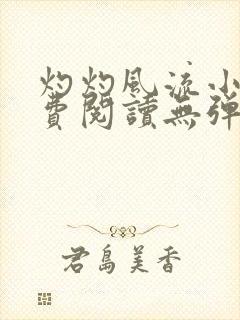 灼灼風流小
費閱讀無彈
君島美香